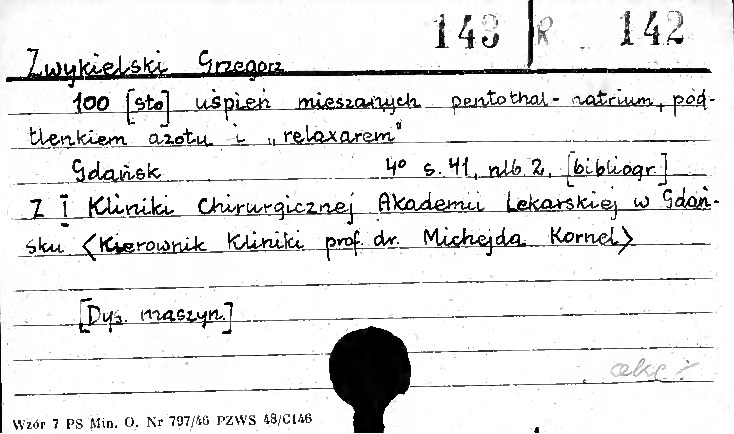 143 R 142
Zwykielski Grzegorz
100 [sto] uśpień mieszanych pentothal-natrium, pod-
tlenkiem azotu i „relaxarem"
Gdańsk 4° s. 41, nlb. 2, [bibliogr.]
Z I Kliniki Chirurgicznej Akademii Lekarskiej w Gdań-
sku <Kierownik Kliniki prof. dr. Michejda Kornel>
[Dys. maszyn.]
Wzór 7 PS Min. O. Nr 797/46 PZWS 48/C146